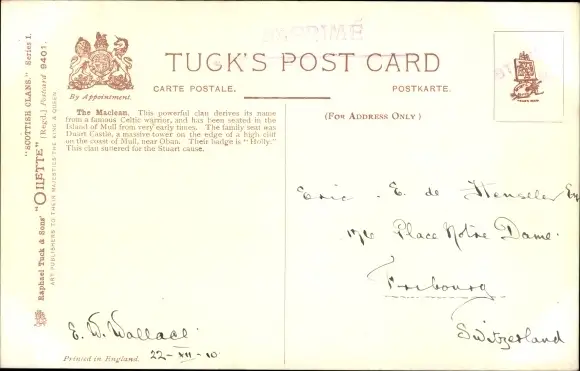 IMPRIMÉ
TUCK'S POST CARD
CARTE POSTALE.
POSTKARTE.
By Appointment.
(FOR ADDRESS ONLY)
The Maclean. This powerful clan derives its name
from a famous Celtic warrior, and has been seated in the
Island of Mull from very early times. The family seat was
Duart Castle, a massive tower on the edge of a high cliff
on the coast of Mull, near Oban. Their badge is "Holly."
This clan suffered for the Stuart cause.
"SCOTTISH CLANS." Series I.
Raphael Tuck & Sons' "OILETTE" [Regd.] Postcard 9401.
ART PUBLISHERS TO THEIR MAJESTIES THE KING & QUEEN.
Eric. E. de
176 Place Notre Dame.
Fribourg
Switzerland
E. W. Wallace.
22-XII-10
Printed in England.